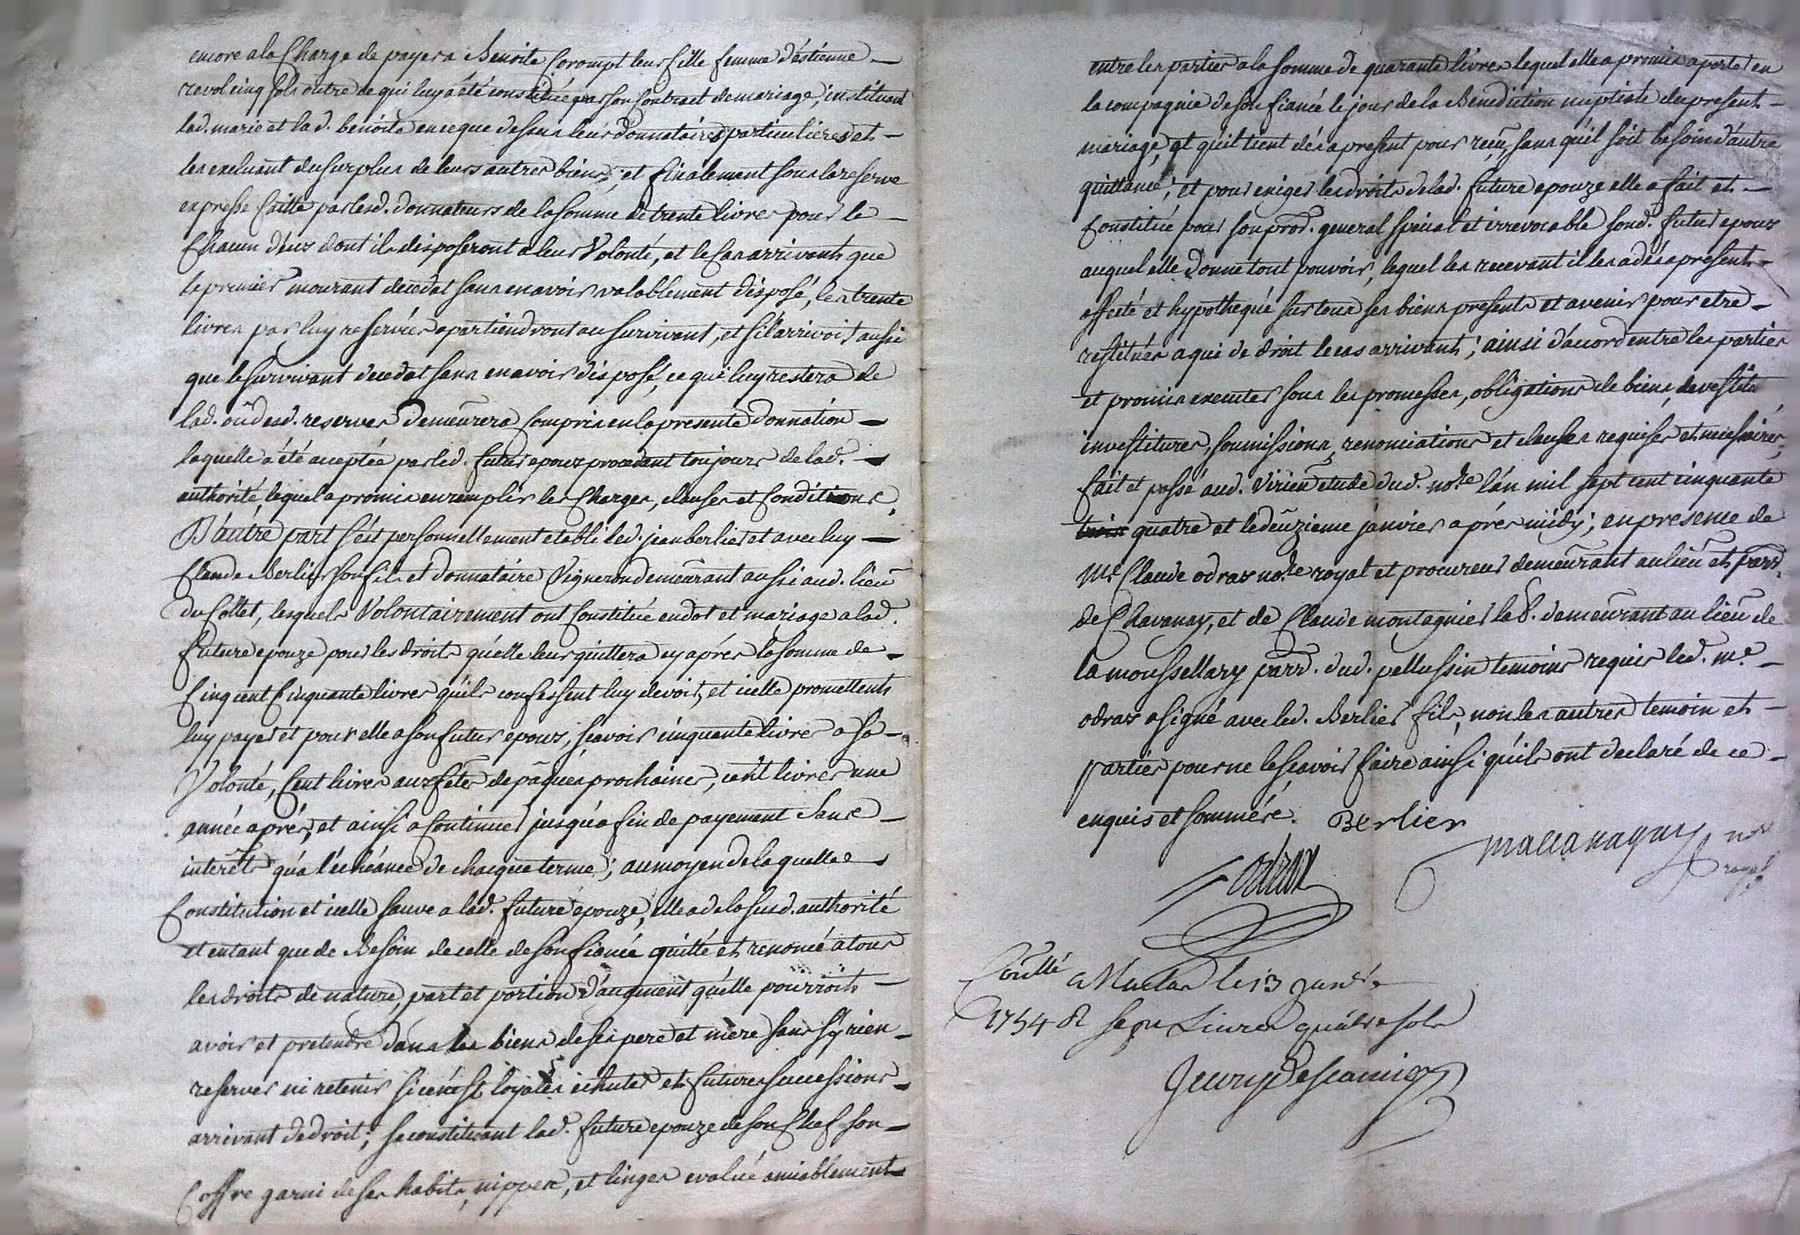 encore a la Charge de payer a Benoite Corompt leur fille femme d'éstienne
revol cinq sols outre ce qui luy a été constitué par son contract de mariage, instituant
lad. marie et lad. benoite en ce que dessus leurs donnataires particulieres et
les excluant du surplus de leurs autres biens; et finalement sous la reserve
expresse faitte par lesd. donnateurs de la somme de trente livres pour le
Chacun d'eux dont ils disposeront a leur Volonté, et le Cas arrivant que
le premier mourant decedat sans en avoir valablement disposé, les trente
livres par luy reservées apartiendront au survivant, et s'il arrivoit aussi
que le survivant decedat sans en avoir disposé, ce qui luy restera de
lad. oû desd. reserves demeurera Compris en la presente donnation
laquelle a été aceptée par led. futur epoux procedant toujours de lad.
authorité, lequel a promis en remplir les Charges, clauses et Conditions,
D'autre part s'ést personnellement etabli led. jean berlier et avec luy
Claude Berlier son fils et donnataire Vigneron demeurant aussi aud. lieu
du Collet, lesquels Volontairement ont Constitué en dot et mariage a lad.
future epouze pour les droits qu'elle leur quittera cy aprés la somme de
Cinq cent Cinquante livres qu'ils confessent luy devoir, et icelle promettent
luy payer et pour elle a son futur epoux, sçavoir cinquante livres a sa
Volonté, Cent livres aux fêtes de pâques prochaines, cent livres une
année aprés, et ainsi a Continuer jusqu'a fin de payement sans
interêts qu'a l'échéance de chacque terme; au moyen de laquelle
Constitution et icelle sauve a lad. future epouze, elle a de la susd. authorité
et entant que de Besoin de celle de son fiancé quitté et renoncé a tous
les droits de nature, part et portion d'augment qu'elle pourroit
avoir et pretendre dans les biens de ses pere et mere sans s'y rien
reserver ni retenir si ce n'est loyale echute et futures successions
arrivant de droit; se constituant lad. future epouze de son Chef son
Coffre garni de ses habits, nippes, et linges evalué amiablement
entre les parties a la somme de quarante livres lequel elle a promis aporter en
la compagnie de son fiancé le jour de la Benediction nuptiale du present
mariage, et qu'il tient dés a present pour reçû sans qu'il soit besoin d'autre
quittance; et pour exiger les droits de lad. future epouze elle a fait et
Constitué pour son pror. general special et irrevocable sond. futur epoux
auquel elle donne tout pouvoir, lequel les recevant il les a dés a present
affecté et hypothequé sur tous ses biens presents et avenir pour etre
restitués a qui de droit le cas arrivant; ainsi d'acord entre les parties
et promis executer sous les promesses, obligations de biens, devestitu
investitures, soumissions, renonciations et clauses requises et necessaires,
fait et passé aud. Virieu etude dud. nore. l'an mil sept cent cinquante
trois quatre et le deuzieme janvier aprés midy; en presence de
me. Claude odras nore. royal et procureur demeurant au lieu et parr.
de Chavanay, et de Claude montagnier lab. demeurant au lieu de
la moussellary parr. dud. pellussin temoins requis led. me.
odras a signé avec led. Berlier fils, non les autres temoin et
parties pour ne le sçavoir faire ainsi qu'ils ont declaré de ce
enquis et sommés. Berlier
odras
nre
royal
Conllé a le 13 janvr.
1754 R sept Livres quatre sols